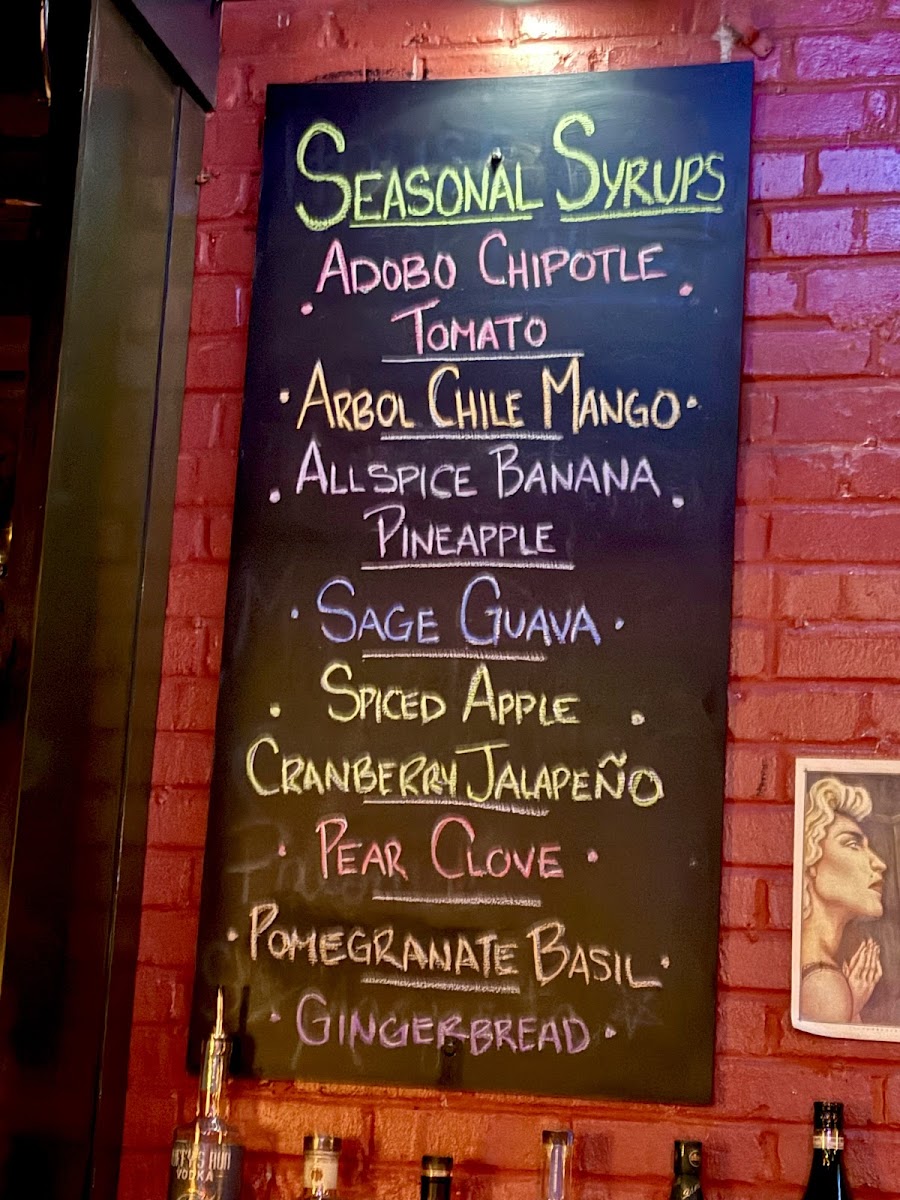 SEASONAL SYRUPS
ADOBO CHIPOTLE
TOMATO
ARBOL CHILE MANGO
ALLSPICE BANANA
PINEAPPLE
SAGE GUAVA
SPICED APPLE
CRANBERRY JALAPEÑO
PEAR CLOVE
POMEGRANATE BASIL
GINGERBREAD
VODKA